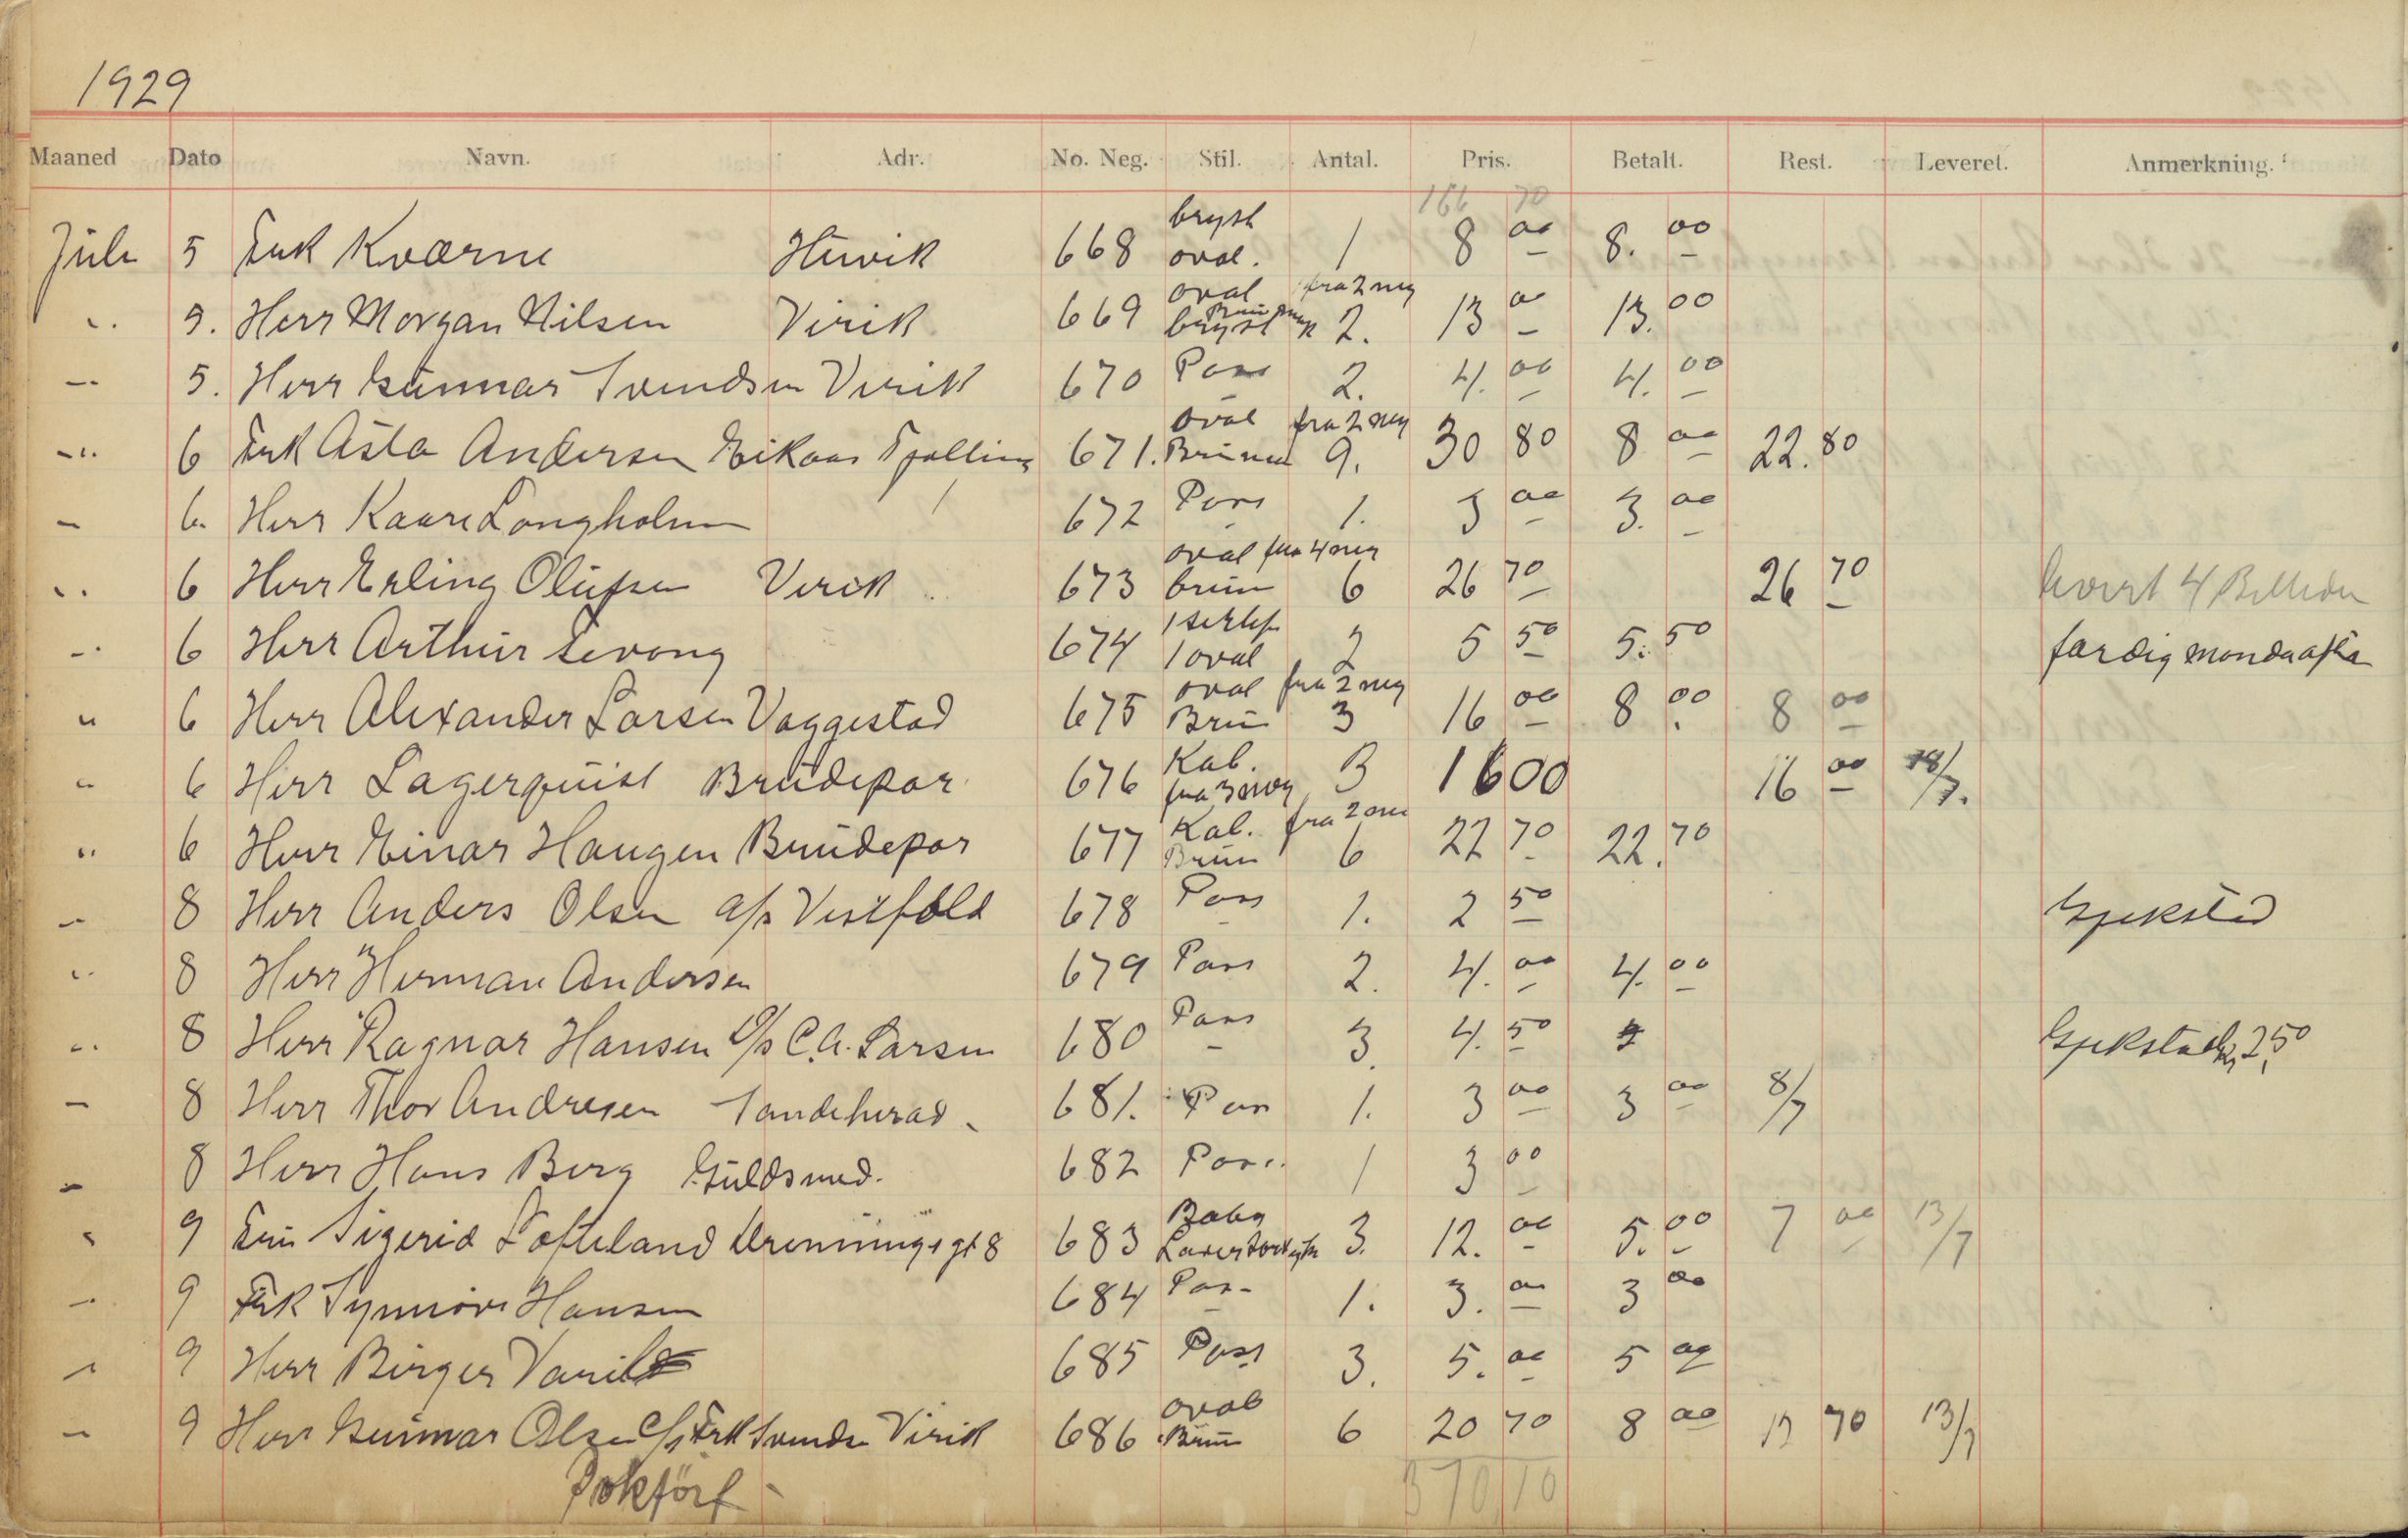 1929
Maaned Dato Navn. Adr. No. Neg. Stil. Antal. Pris. Betalt. Rest. Leveret. Anmerkning.
166 70
bryst
Juli 5 Frk Kværne Huvik 668 oval. 1 8 00 8. 00
oval fra 2 neg
" 5. Herr Morgan Nilsen Virik 669 bryst 2. 13 00 13. 00
— 5. Herr Gunnar Svendsen Virik 670 Pass 2. 4. 00 4. 00
oval fra 2 neg
—" 6 Frk Asta Andersen Eikaas Tjølling 671. Brun 9. 30 80 8 00 22. 80
— 6. Herr Kaare Langholm 672 Pass 1. 3 00 3. 00
oval fra 4 neg
" 6 Herr Erling Olufsen Virik 673 brun 6 26 70 26 70 levert 4 Billeder
—" 6 Herr Arthur Sevang 674 1 oval 2 5 50 5. 50 færdig
oval fra 2 neg
" 6 Herr Alexander Larsen Vaggestad 675 Brun 3 16 00 8 00 8 00
Kab.
" 6 Herr Lagerquist Brudepar 676 fra 3 neg 3 16 00 16 00 18/7.
Kab. fra 2 neg
" 6 Herr Einar Haugen Brudepar 677 Brun 6 22 70 22. 70
— 8 Herr Anders Olsen a/s Vestfold 678 Pass 1. 2 50 Gjekstad
" 8 Herr Herman Andersen 679 Pass 2. 4. 00 4. 00
" 8 Herr Ragnar Hansen D/s C.A. Larsen 680 Pass 3. 4. 50 Gjekstad 2,50
— 8 Herr Thor Andresen Sandeherad. 681. Pass 1. 3 00 3 00 8/7
— 8 Herr Hans Berg Guldsmed. 682 Pass. 1 3 00
Baby
" 9 Fru Sigerid Lofteland Dronningsgt 8 683 3. 12. 00 5. 00 7 00 13/7
— 9 Frk Synnøve Hansen 684 Pas- 1. 3. 00 3 00
— 9 Herr Birger Varild 685 Pass 3. 5. 00 5 00
oval
— 9 Herr Gunnar Olsen c/s Frk Svendsen Virik 686 Brun 6 20 70 8 00 12 70 13/7
Bokført 370 10